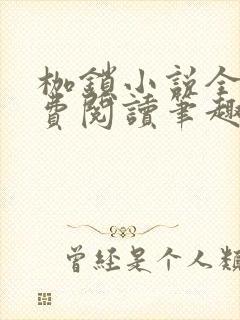 枷鎖小説全
費閱讀筆趣
曾经是个人類